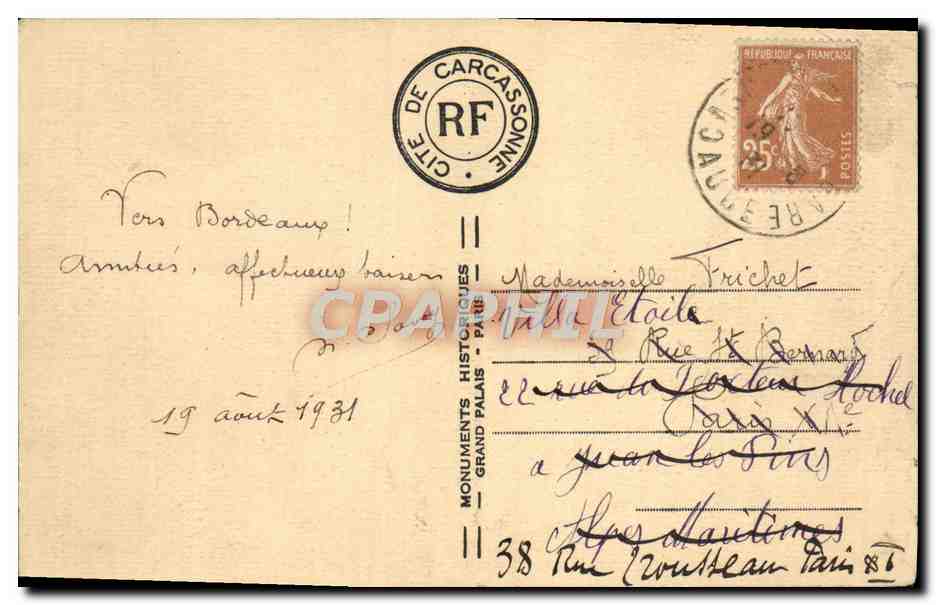 CITE DE CARCASSONNE
RF
RÉPUBLIQUE FRANÇAISE
25c
POSTES
GARE
Vers Bordeaux !
Amitiés, affectueux baisers
19 août 1931
MONUMENTS HISTORIQUES
GRAND PALAIS - PARIS
CPARAPHIL
Mademoiselle Frichet
Villa Etoile
39 Rue St Bernard
22 rue du Docteur Hochet
Paris XIe
a Juan les Pins
Alpes Maritimes
38 Rue Trousseau Paris XI